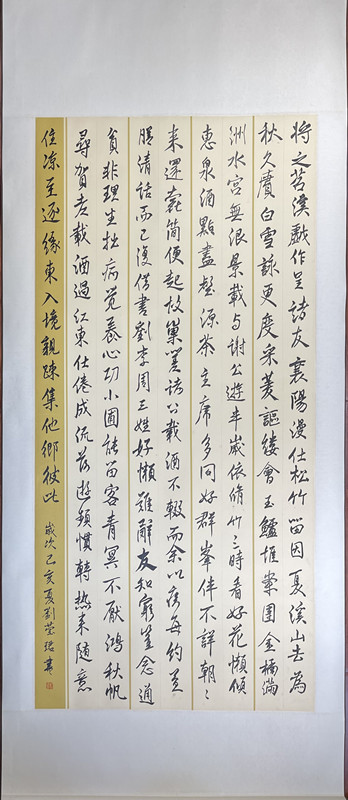 将之苕溪戲作呈諸友襄陽漫仕松竹留因夏溪山去為
秋久賡白雪詠更度采菱謳縷會玉鱸堆案團金橘滿
洲水宮無限景載与謝公遊半歲依脩竹三時看好花懶傾
惠泉酒點盡壑源茶主席多同好群峯伴不譁朝〻
来還蠹簡便起故巢嗟諸公載酒不輟而余以疾每約置
膳清話而已復借書劉李周三姓好懶難辭友知窮豈念通
貧非理生拙病覺養心功小圃能留客青冥不厭鴻秋帆
尋賀老載酒過江東仕倦成流落遊頻慣轉蓬熱来隨意
住凉至逐緣東入境親疎集他鄉彼此
歲次己亥夏劉瑩